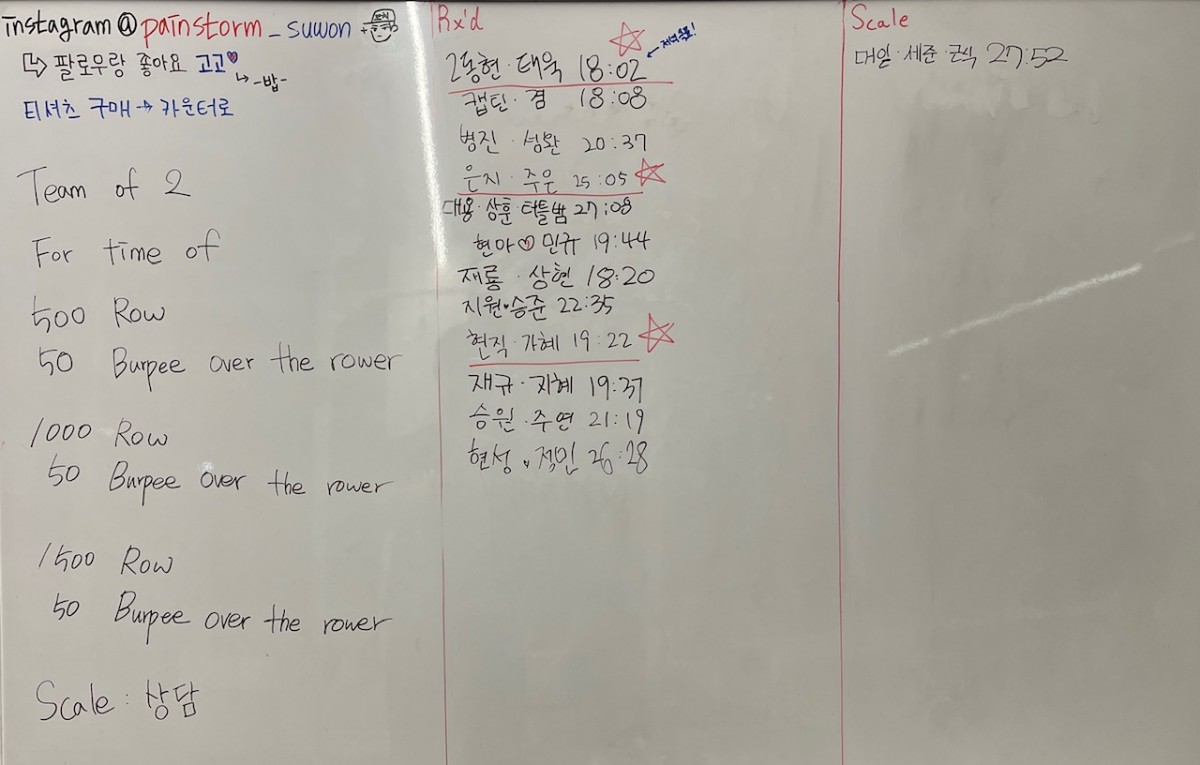 instagram@painstorm_suwon
↳ 팔로우랑 좋아요 고고♥
↳ -밥-
티셔츠 구매 → 카운터로
Team of 2
For time of
500 Row
50 Burpee over the rower
1000 Row
50 Burpee over the rower
1500 Row
50 Burpee over the rower
Scale : 상담
Rx'd
2동현 · 태욱 18:02
캡틴 · 겸 18:08
병진 · 성완 20:37
은지 · 주은 25:05
대용 · 상훈 · 터틀밤 27:08
현아♡민규 19:44
재룡 · 상현 18:20
지원 · 승준 22:35
현직 · 가혜 19:22
재규 · 지혜 19:37
승원 · 주연 21:19
현성 · 적민 26:28
Scale
대일 · 세준 · 군식 27:52